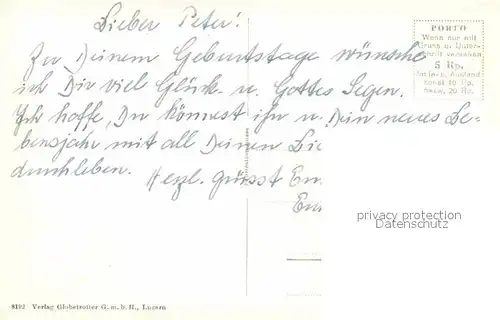 Lieber Peter!
Zu Deinem Geburtstage wünsche
ich Dir viel Glück u. Gottes Segen.
Ich hoffe, Du könnest ihn u. Dein neues Le-
bensjahr mit all Deinen Lie
durchleben.
Herzl. grüsst Eu
Eu
PORTO
Wenn nur mit
Gruss u. Unter-
schrift versehen
5 Rp.
Inland, Ausland
sonst 10 Rp.
bezw. 20 Rp.
privacy protection
AnsichtskartenVersand.com
8192 Verlag Globetrotter G. m. b. H., Luzern